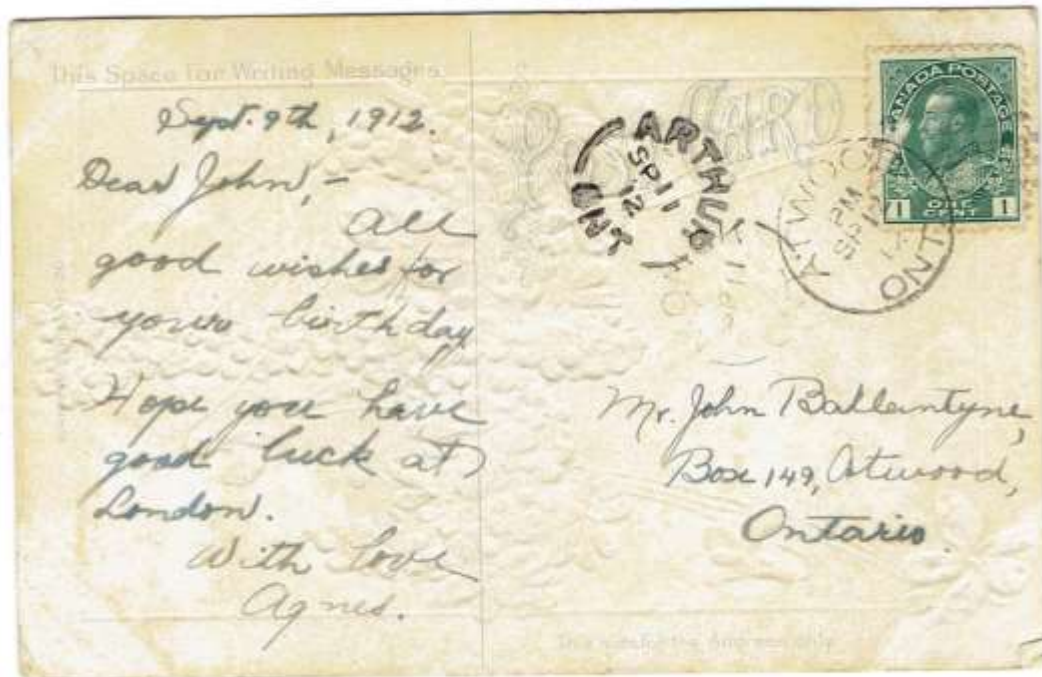 This Space For Writing Messages
Sept. 9th, 1912.
Dear John,-
All
good wishes for
your birthday
Hope you have
good luck at
London.
With love
Agnes.
CARD
ARTHUR
SP 11
12
ONT
ATWOOD
PM
SP 12
ONT
CANADA POSTAGE
1 ONE CENT 1
Mr. John Ballantyne,
Box 149, Atwood,
Ontario.
This side for the Address only